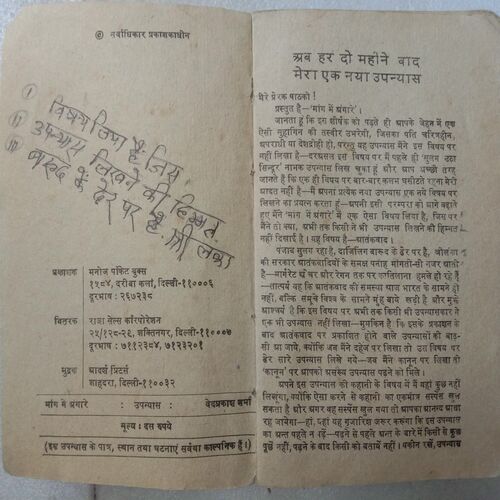 @ सर्वाधिकार प्रकाशकाधीन
विषय
है जिस
उपन्यास लिखने की हिम्मत
के ढेर पर है श्री लंका
प्रकाशक मनोज पॉकेट बुक्स
१५८४, दरीबा कलां, दिल्ली-११०००६
दूरभाष : २६७२३८
वितरक राजा सेल्स कॉरपोरेशन
२५/१२८-२९, शक्तिनगर, दिल्ली-११०००७
दूरभाष : ७११२३८४, ७१२३२०१
मुद्रक आदर्श प्रिंटर्स
शाहदरा, दिल्ली-११००३२
मांग में अंगारे : उपन्यास : वेदप्रकाश शर्मा
मूल्य : दस रुपये
(इस उपन्यास के पात्र, स्थान तथा घटनाएं सर्वथा काल्पनिक हैं।)
अब हर दो महीने बाद
मेरा एक नया उपन्यास
मेरे प्रेरक पाठको !
प्रस्तुत है—'मांग में अंगारे'।
जानता हूं कि इस शीर्षक को पढ़ते ही आपके जेहन में एक
ऐसी सुहागिन की तस्वीर उभरेगी, जिसका पति चरित्रहीन,
अपराधी या देशद्रोही हो, परन्तु यह उपन्यास मैंने इस विषय पर
नहीं लिखा है—दरअसल इस विषय पर मैं पहले ही 'सुलग उठा
सिन्दूर' नामक उपन्यास लिख चुका हूं और आप अच्छी तरह
जानते हैं कि एक ही विषय पर बार-बार कलम घसीटते रहना मेरी
आदत नहीं है—मैं अपना प्रत्येक नया उपन्यास एक नये विषय पर
लिखने का प्रयत्न करता हूं—अपनी इसी परम्परा को आगे बढ़ाते
हुए मैंने 'मांग में अंगारे' में एक ऐसा विषय लिया है, जिस पर
मैंने तो क्या, अभी तक किसी ने भी उपन्यास लिखने की हिम्मत
नहीं दिखाई है। यह विषय है—आतंकवाद।
पंजाब सुलग रहा है, दार्जिलिंग बारूद के ढेर पर है, श्रीलंका
की सरकार आतंकवादियों के समक्ष पनाह मांगती-सी नजर आती
है—मार्गरेट थैचर और रेगन तक पर कातिलाना हमले हो रहे हैं
—तात्पर्य यह कि आतंकवाद की समस्या आज भारत के सामने ही
नहीं, बल्कि समूचे विश्व के सामने मुंह बाये खड़ी है और मुझे
आश्चर्य है कि इस विषय पर अभी तक किसी भी उपन्यासकार ने
एक भी उपन्यास नहीं लिखा—मुमकिन है कि इसके प्रकाशन के
बाद आतंकवाद पर प्रकाशित होने वाले उपन्यासों की बाढ़-
सी आ जाये, क्योंकि जब मैंने दहेज पर लिखा तो उस विषय पर
ढेर सारे उपन्यास लिखे गये—जब मैंने कानून पर लिखा तो
'कानून' पर आपको असंख्य उपन्यास पढ़ने को मिले।
अपने इस उपन्यास की कहानी के विषय में मैं यहां कुछ नहीं
लिखूंगा, क्योंकि ऐसा करने से कहानी का एकमात्र सस्पेंस खुल
सकता है और अगर वह सस्पेंस खुल गया तो आपका आनन्द आधा
रह जायेगा—हां, यहां यह गुजारिश जरूर करूंगा कि इस उपन्यास
का अन्त पहले न पढ़ें—पढ़ने से पहले अन्त के बारे में किसी से कुछ
पूछें नहीं, पढ़ने के बाद किसी को बतायें नहीं। यकीन रखें, उपन्यास